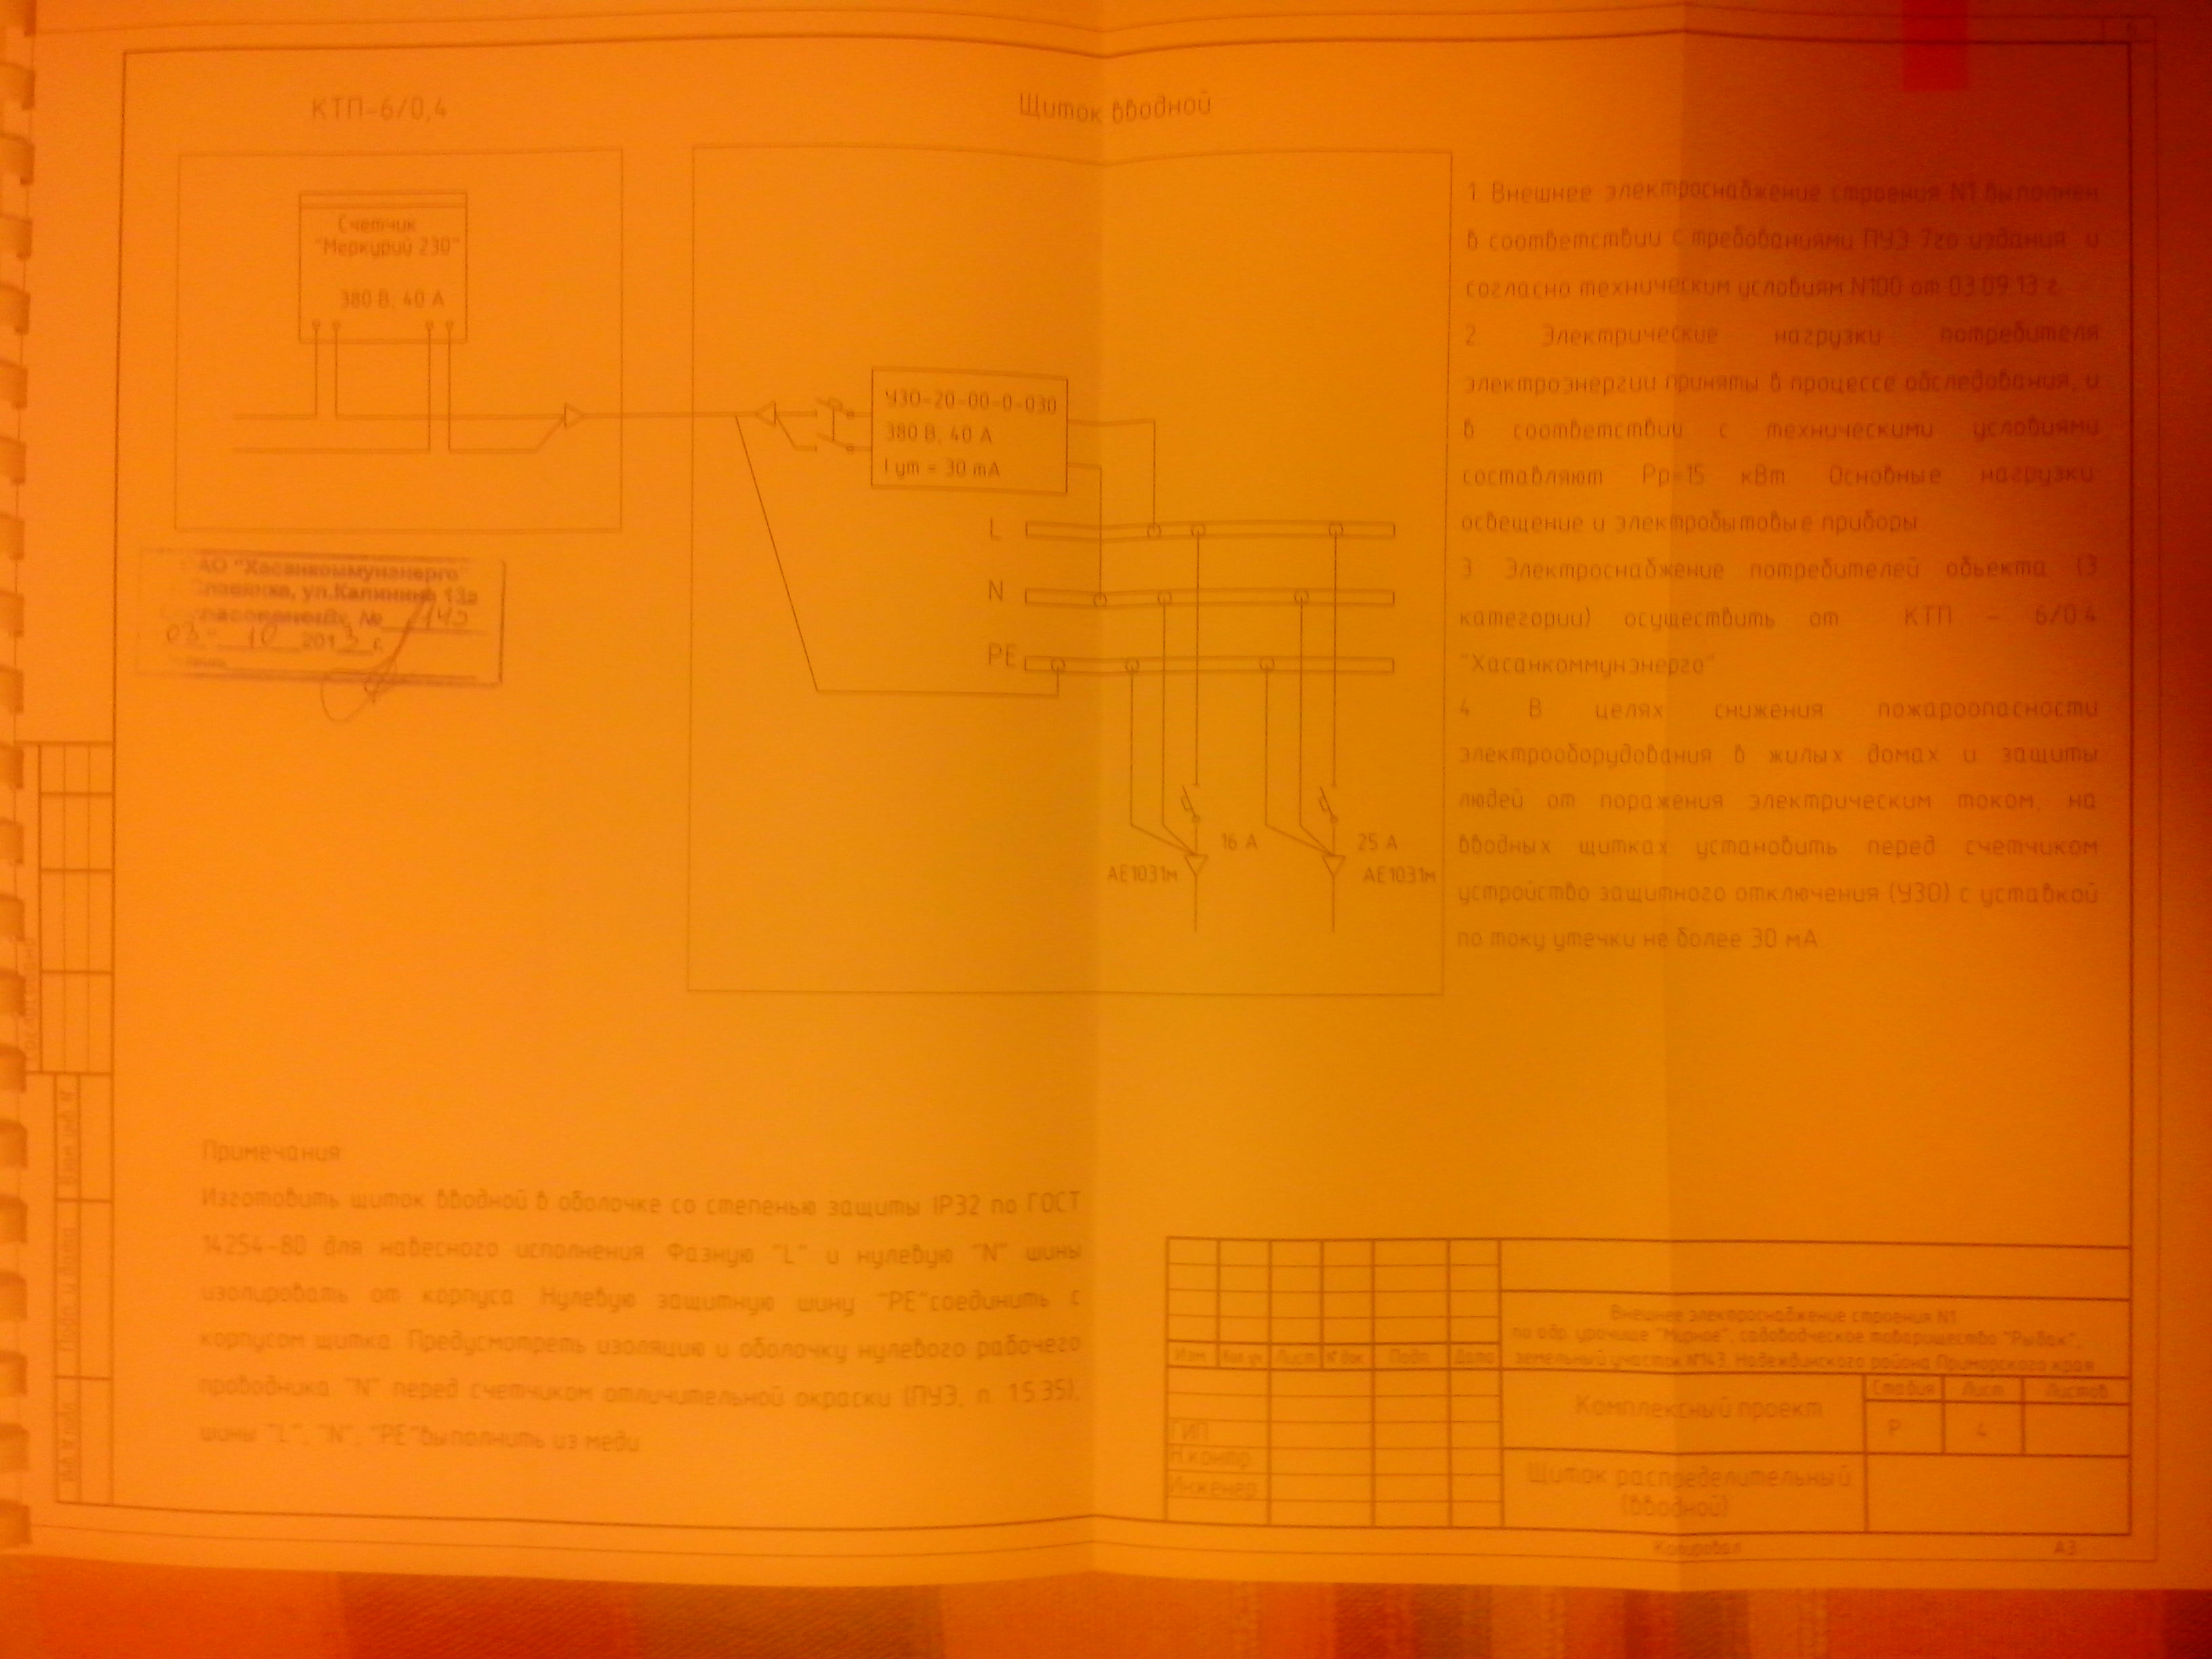 КТП-6/0,4
Щиток вводной
Счетчик
"Меркурий 230"
380 В, 40 А
УЗО-20-00-0-030
380 В, 40 А
I ут = 30 mA
L
N
PE
16 А
25 А
АЕ1031м
АЕ1031м
АО "Хасанкоммунэнерго"
ул.Калинина 13а
№ 143
03 10 2013 г.
1 Внешнее электроснабжение строения N1 выполнен
в соответствии с требованиями ПУЭ 7го издания и
согласно техническим условиям N100 от 03.09.13 г.
2 Электрические нагрузки потребителя
электроэнергии приняты в процессе обследования, и
в соответствии с техническими условиями
составляют Рр=15 кВт Основные нагрузки
освещение и электробытовые приборы
3 Электроснабжение потребителей объекта (3
категории) осуществить от КТП - 6/0.4
"Хасанкоммунэнерго"
4 В целях снижения пожароопасности
электрооборудования в жилых домах и защиты
людей от поражения электрическим током, на
вводных щитках установить перед счетчиком
устройство защитного отключения (УЗО) с уставкой
по току утечки не более 30 мА
Примечания
Изготовить щиток вводной в оболочке со степенью защиты IP32 по ГОСТ
14254-80 для навесного исполнения Фазную "L" и нулевую "N" шины
изолировать от корпуса Нулевую защитную шину "PE"соединить с
корпусом щитка Предусмотреть изоляцию и оболочку нулевого рабочего
проводника "N" перед счетчиком отличительной окраски (ПУЭ, п. 1.5.35),
шины "L", "N", "PE"выполнить из меди
Согласовано
Взам. инв. N
Подп. и дата
Инв. N подл.
Внешнее электроснабжение строения N1
по адр. урочище "Мирное", садоводческое товарищество "Рыбак",
земельный участок N143, Надеждинского района Приморского края
Изм. Кол.уч. Лист N°док. Подп. Дата
Комплексный проект
Стадия Лист Листов
Р 4
ГИП
Н.контр.
Инженер
Щиток распределительный
(вводной)
Копировал
А3